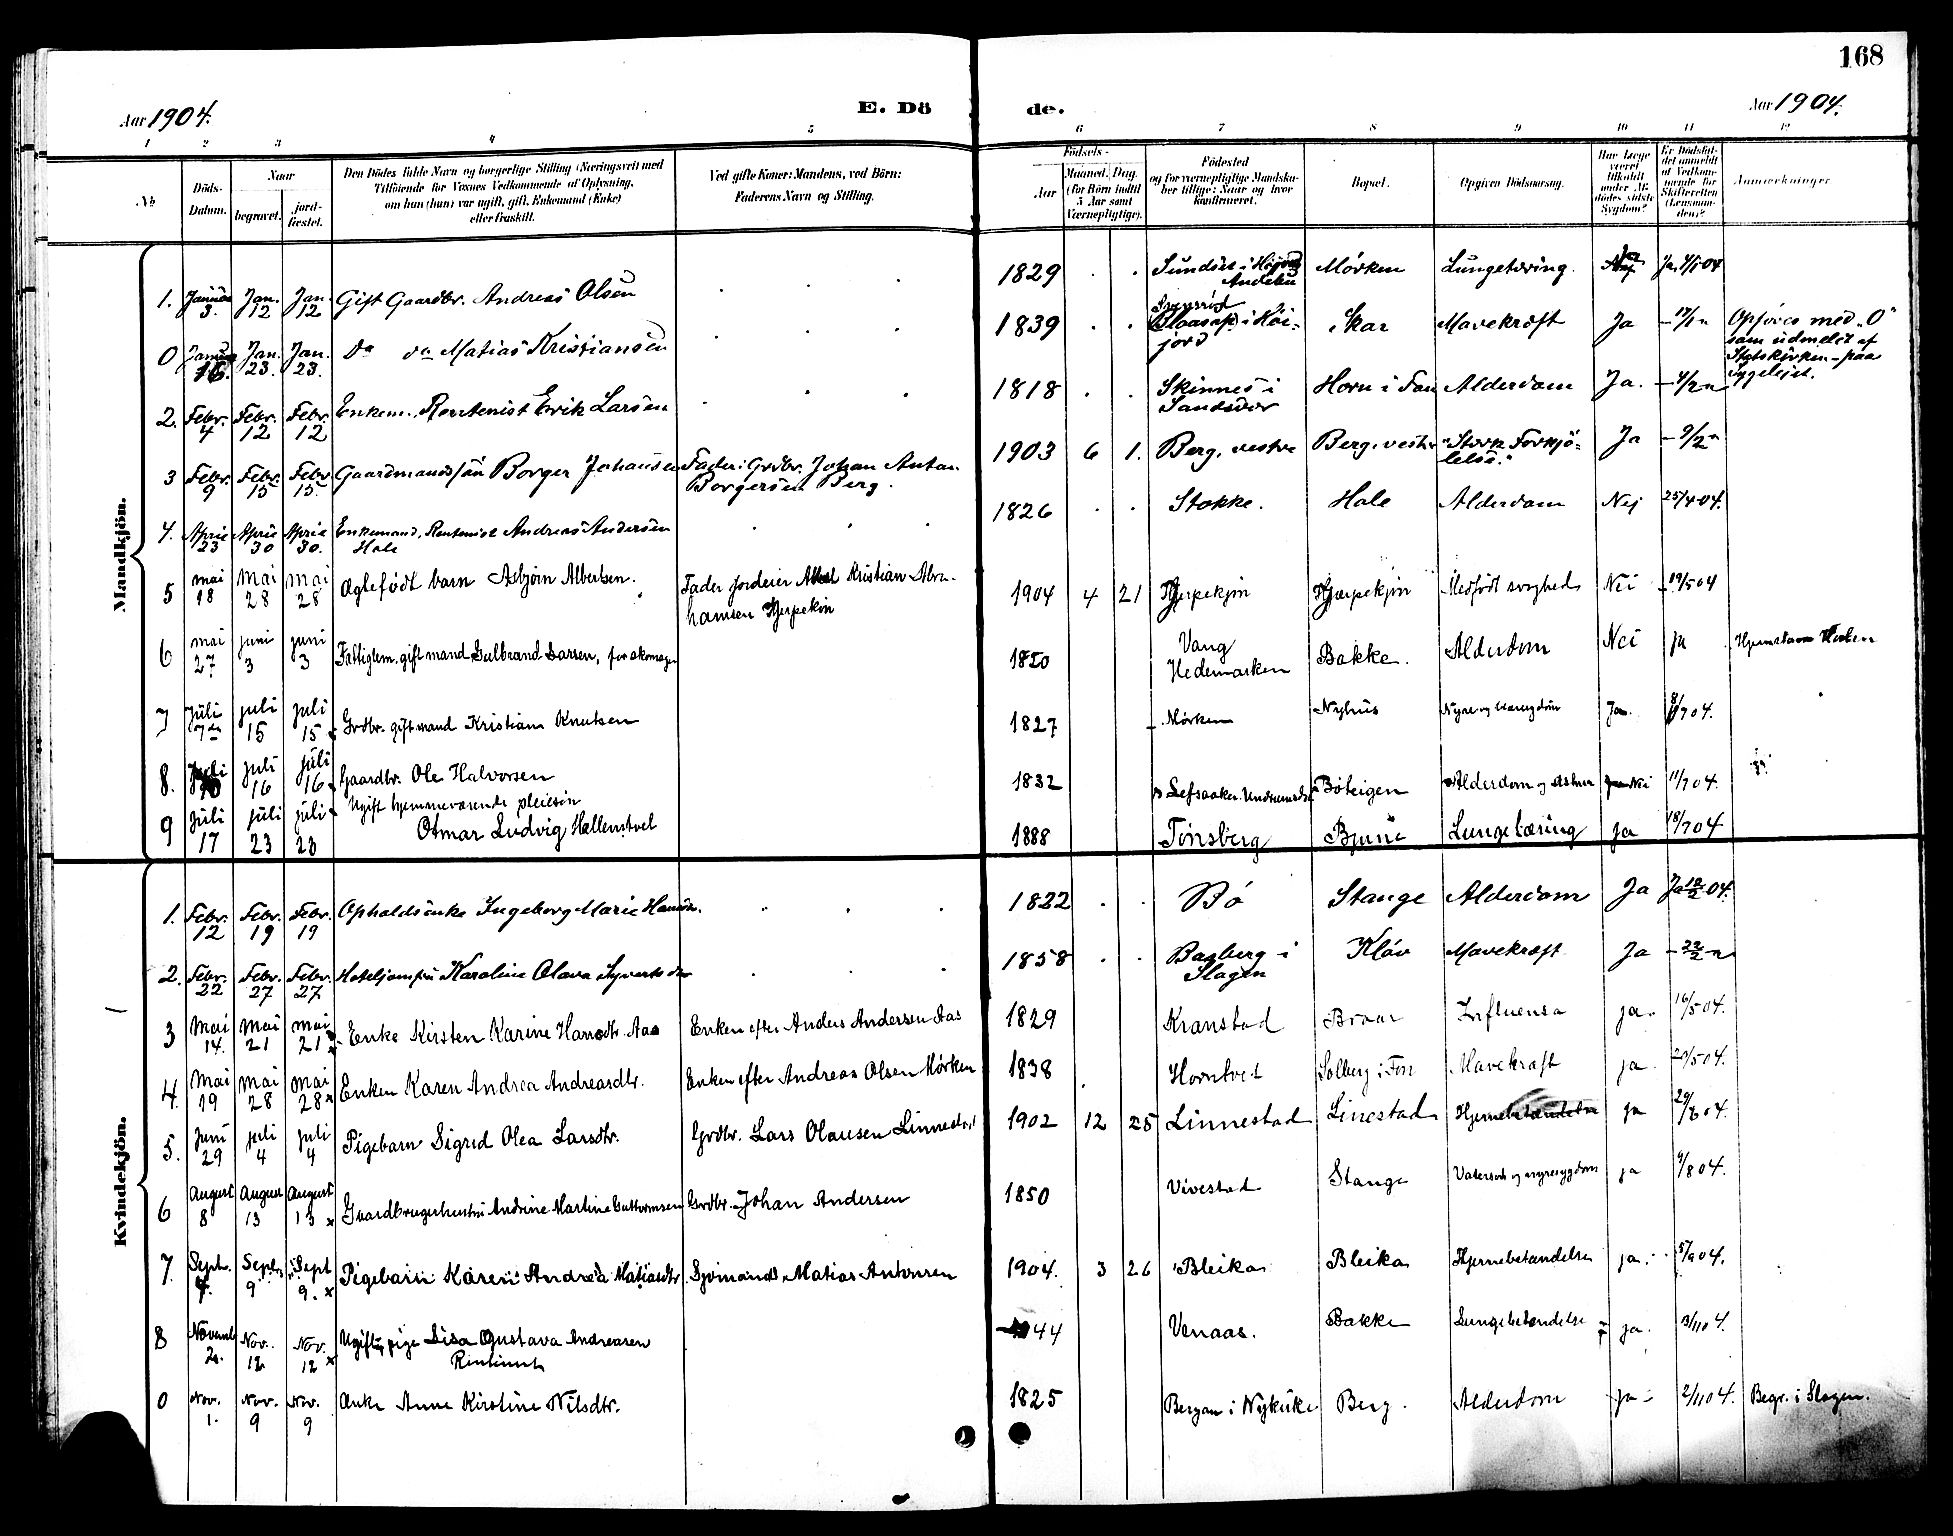 168
Aar 1904.
E. Dö
de.
Aar 1904.
1 2 3 4 5 6 7 8 9 10 11 12
No
Döds-
Datum.
Naar
begravet.
jord-
fæstet.
Den Dödes fulde Navn og borgerlige Stilling (Næringsvei) med
Tilföiende for Voxnes Vedkommende af Oplysning,
om han (hun) var ugift, gift, Enkemand (Enke)
eller fraskilt.
Ved gifte Koner: Mandens, ved Börn:
Faderens Navn og Stilling.
Födsels-
Aar
Maaned. Dag.
(for Börn indtil
5 Aar samt
Værnepligtige).
Födested
og for værnepligtige Mandska-
ber tillige: Naar og hvor
konfirmeret.
Bopæl.
Opgiven Dödsaarsag.
Har Læge
været
tilkaldt
under Af-
dödes sidste
Sygdom?
Er Dödsfal-
det anmeldt
af Vedkom-
mende for
Skifteretten
(Lensman-
den)?
Anmærkninger
Mandkjön.
1. Januar 3. Jan. 12 Jan. 12 Gift Gaardbr. Andreas Olsen 1829 Mörken Lungetæring. Ja 4/1 04
0 Januar 16. Jan. 23. Jan. 23. Do do Matias Kristiansen 1839 i Höi-
jord Skar Mavekræft Ja Opföres med "0"
som udmeldt af
Statskirken - paa
Sygelejet.
2. Febr. 4 Febr. 12 Febr. 12 Enkem. Rentenist Erik Larsen 1818 Skinnes i
Sandsvær Horn i Fon Alderdom Ja. - 4/2 "
3 Febr. 9 Febr. 15 Febr. 15. Gaardmandssön Borger Johansen Fader: Grdbr. Johan Anton
Borgersen Berg. 1903 6 1. Berg, vestre Berg, vestre "Stærk Forkjö-
lelse." Ja - 9/2 "
4. April 23 April 30 April 30. Enkemand, Rentenist Andreas Andersen
Hole 1826 Stokke. Hole Alderdom Nej 25/4 04.
5 mai 18 mai 28 mai 28 Ægtefödt barn Asbjörn Albertsen. Fader jordeier Kristian Abra-
hamsen Hjerpekjön 1904 4 21 Hjerpekjön Hjærpekjön Medfödt svaghed Nei - 19/5 04
6 mai 27 juni 3 juni 3 Fattiglem. gift mand Gulbrand Larsen, 1820 Vang
Hedemarken Bakke. Alderdom Nei ja
7 Juli 7de juli 15 juli 15 Grdbr. gift mand Kristian Knutsen 1827 Mörken Nyhus Ja. 8/7 04.
8. Juli 10 juli 16 juli 16 Gaardbr. Ole Halvorsen 1832 Böteigen Alderdom og Astma Nei 11/7 04.
9 juli 17 juli 23 juli 23 Ugift hjemmeværende pleiesön
Otmar Ludvig Hellenstvet 1888 Tönsberg Bjune Lungetæring ja 18/7 04
Kvindekjön.
1. Febr. 12 Febr. 19 Febr. 19 Opholdsenke Ingeborg Marie Hansdr. 1822 Bö Stange Alderdom Ja Ja 12/2 04.
2. Febr. 22 Febr. 27 Febr. 27. Hoteljomfru Karoline Olava Syvertsdtr 1858 Basberg i
Slagen Klöv Mavekræft Ja - 22/2 "
3 Mai 14. Mai 21 mai 21 Enke Kirsten Karine Hansdtr. Aas Enken efter Anders Andersen Aas 1829 Kranstad Braar Influensa ja. 16/5 04.
4. Mai 19 mai 28 mai 28 Enken Karen Andrea Andreasdtr. Enken efter Andreas Olsen Mörken 1838 Horntvet Solberg i Fon Mavekræft ja. 20/5 04.
5. Juni 29 juli 4 juli 4 Pigebarn Sigrid Olea Larsdtr. Grdbr. Lars Olausen Linnestad 1902 12 25 Linnestad Linestad Hjernebetændelse ja
6 August 8 August 13 August 13 Gaardbrugerhustru Andrine Martine Guttormsen Grdbr. Johan Andersen 1850 Vivestad Stange Vatersot og nyresygdom ja 9/8 04.
7. Sept. 4. Sept. 9 Sept 9. Pigebarn Karen Andrea Matiasdtr. Sjömand Matias Antonsen 1904. 3 26 Bleika Bleika Hjernebetændelse ja. 5/9 04.
8 Novemb 2. Nov. 12 Nov. 12 Ugift pige Lisa Gustava Andreasen
Rentenist 44 Venaas. Bakke Lungebetændelse ja. 3/11 04.
0 Nov. 1. Nov. 9 Nov. 9 Enke Anne Kirstine Nilsdtr. 1825 Bergan i Nykirke Berg. Alderdom ja 2/11 04. Begr. i Slagen.